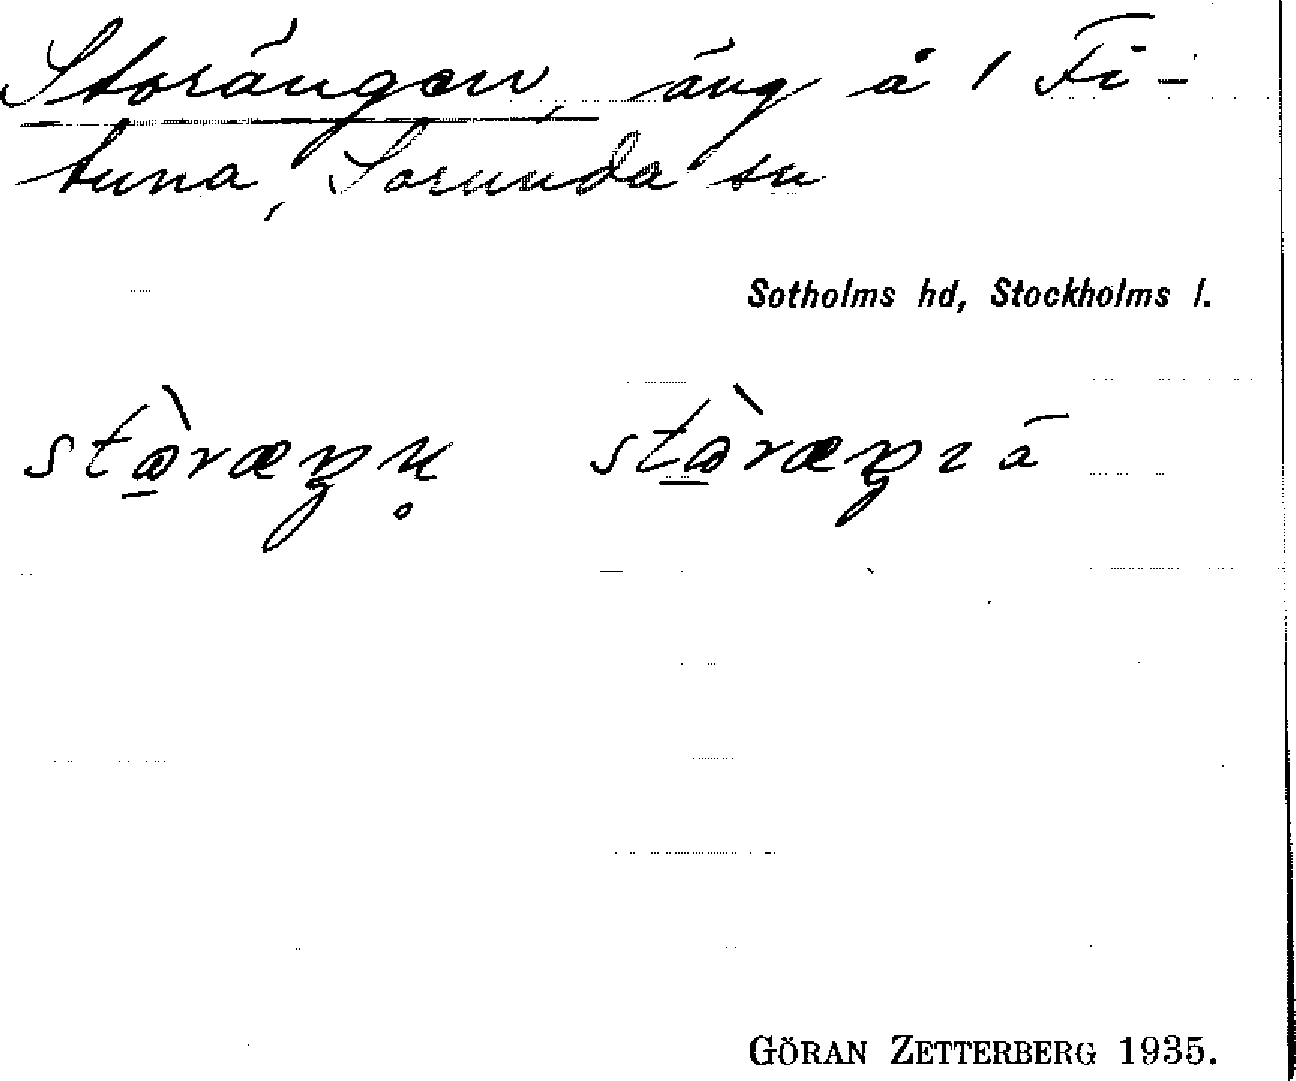 Storängen, äng å 1 Fi-
tuna, Sorunda sn
Sotholms hd, Stockholms l.
GÖRAN ZETTERBERG 1935.